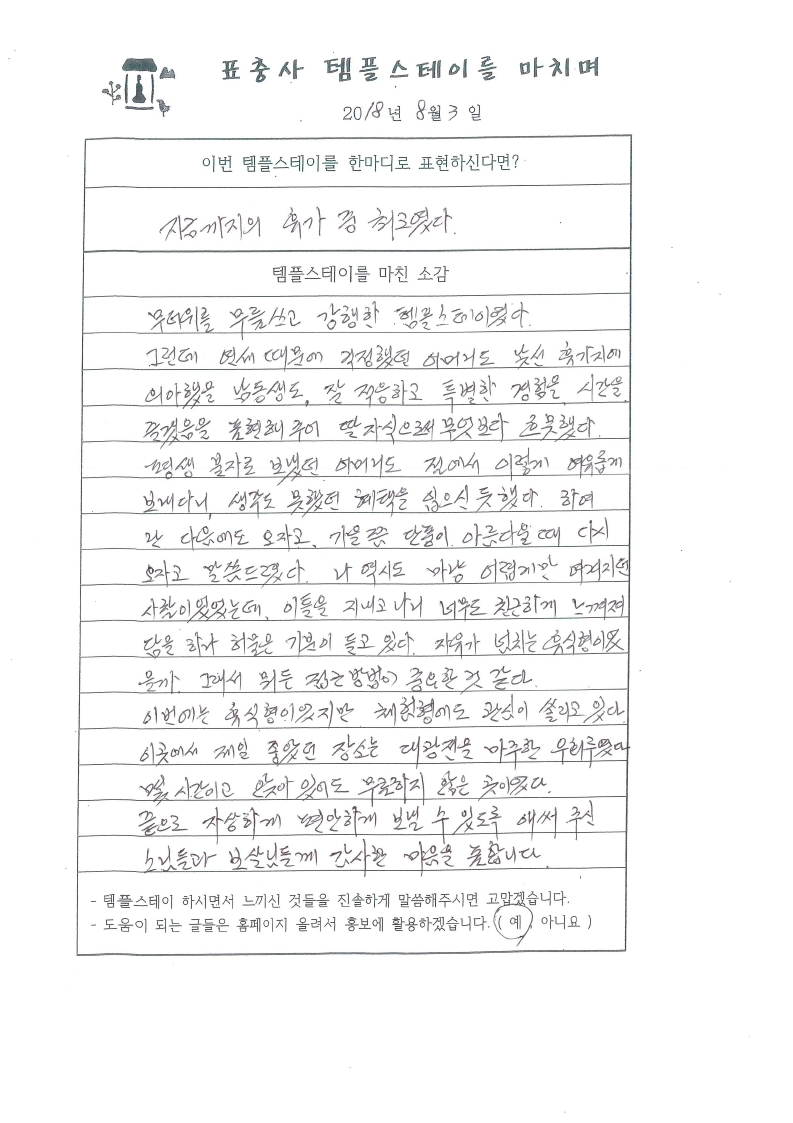 표충사 템플스테이를 마치며
2018년 8월 3일
이번 템플스테이를 한마디로 표현하신다면?
지금까지의 휴가 중 최고였다.
템플스테이를 마친 소감
무더위를 무릅쓰고 강행한 템플스테이였다.
그런데 연세 때문에 걱정했던 어머니도 낯선 휴가지에
의아했을 남동생도, 잘 적응하고 특별한 경험을, 시간을,
즐겼음을 표현해 주어 딸자식으로써 무엇보다 흐뭇했다.
평생 불자로 보냈던 어머니도 절에서 이렇게 여유롭게
보내다니, 생각도 못했던 혜택을 입으신 듯 했다. 하여
다음에도 오자고, 가을쯤 단풍이 아름다울 때 다시
오자고 말씀드렸다. 나 역시도 마냥 어렵게만 여겨지던
사찰이었었는데, 이틀을 지내고 나니 너무도 친근하게 느껴져
담을 하나 허물은 기분이 들고 있다. 자유가 넘치는 휴식형이었
을까. 그래서 뭐든 접근방법이 중요한 것 같다.
이번에는 휴식형이었지만 체험형에도 관심이 쏠리고 있다.
이곳에서 제일 좋았던 장소는 대광전을 마주한 우화루였다
몇 시간이고 앉아 있어도 무료하지 않은 곳이었다.
끝으로 자상하게 편안하게 보낼 수 있도록 애써 주신
스님들과 보살님들께 감사한 마음을 표합니다.
- 템플스테이 하시면서 느끼신 것들을 진솔하게 말씀해주시면 고맙겠습니다.
- 도움이 되는 글들은 홈페이지 올려서 홍보에 활용하겠습니다. ( 예 , 아니요 )